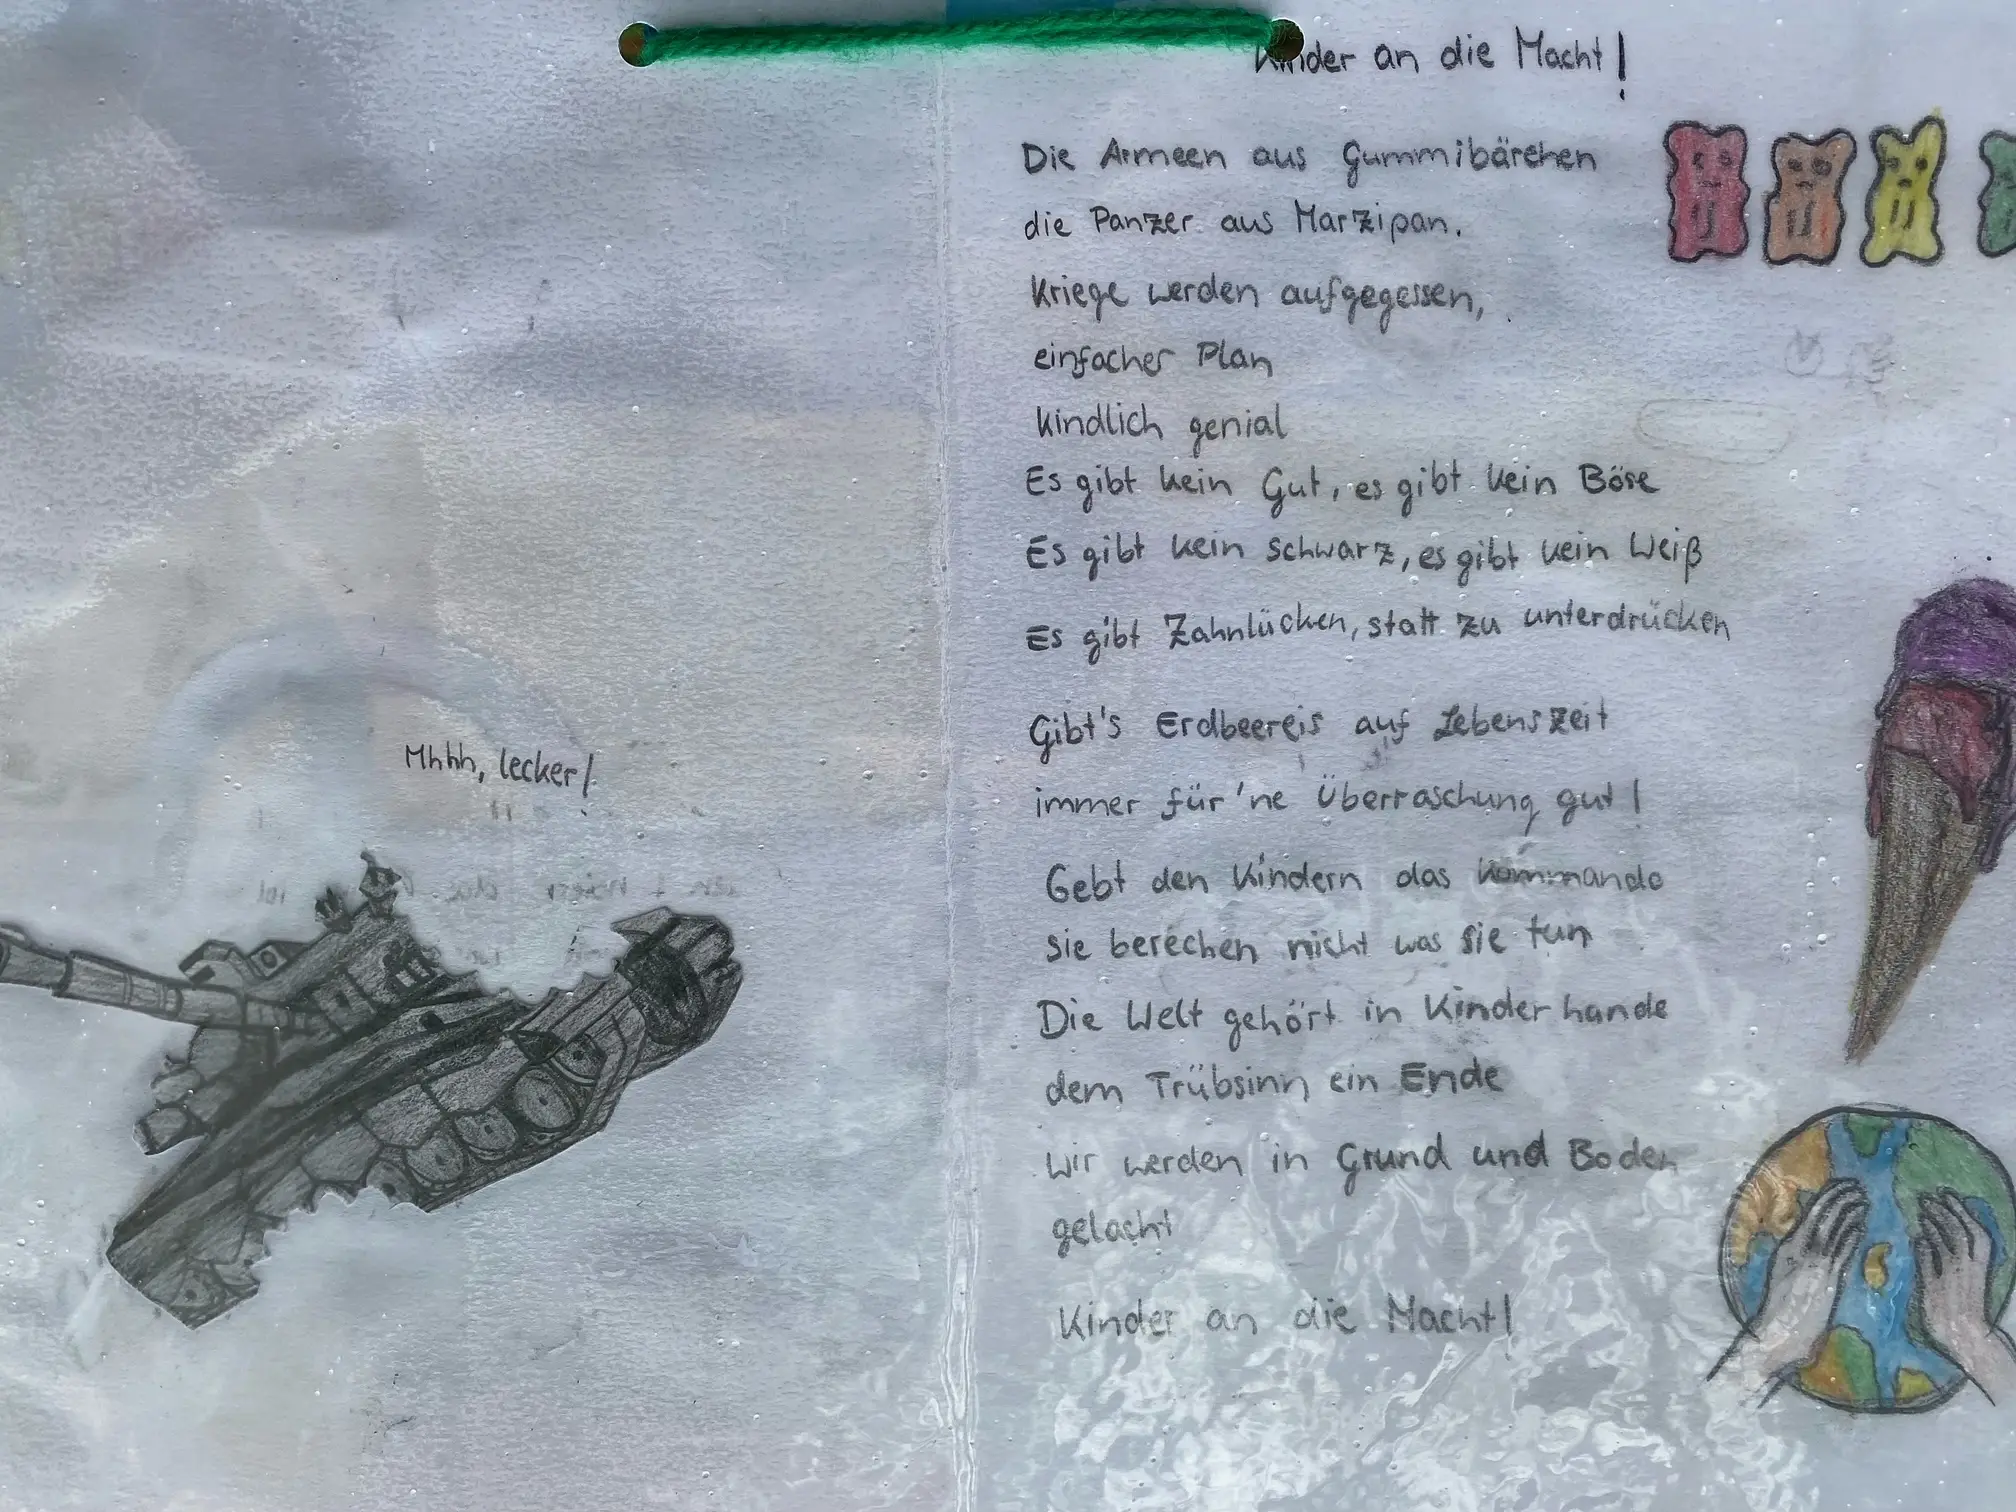 Kinder an die Macht!
Die Armeen aus Gummibärchen
die Panzer aus Marzipan.
Kriege werden aufgegessen,
einfacher Plan
kindlich genial
Es gibt kein Gut, es gibt kein Böse
Es gibt kein Schwarz, es gibt kein Weiß
Es gibt Zahnlücken, statt zu unterdrücken
Gibt's Erdbeereis auf Lebenszeit
immer für 'ne Überraschung gut!
Gebt den Kindern das Kommando
sie berechen nicht was sie tun
Die Welt gehört in Kinderhande
dem Trübsinn ein Ende
Wir werden in Grund und Boden
gelacht
Kinder an die Macht!
Mhhh, lecker!